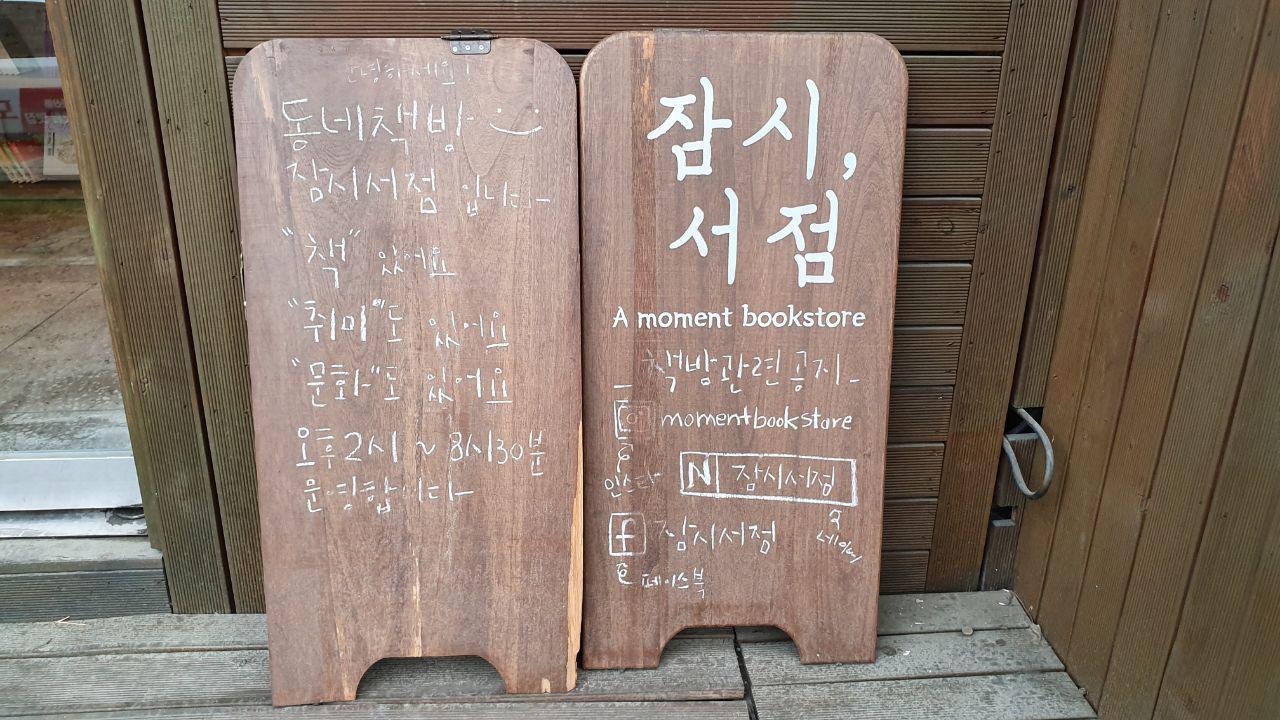 안녕하세요!
동네책방
잠시서점 입니다-
"책" 있어요
"취미"도 있어요
"문화"도 있어요
오후 2시 ~ 8시30분
운영합니다-
잠시,
서점
A moment bookstore
책방관련공지-
momentbookstore
인스타
N 잠시서점
네이버
f 잠시서점
페이스북